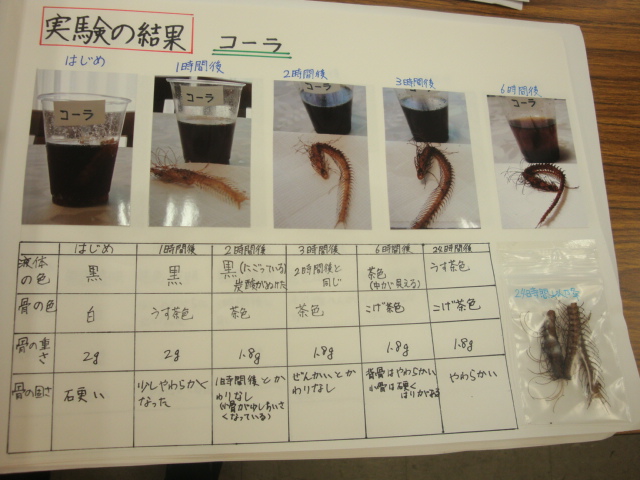 実験の結果 コーラ
はじめ 1時間後 2時間後 3時間後 6時間後
コーラ コーラ コーラ コーラ コーラ
はじめ 1時間後 2時間後 3時間後 6時間後 24時間後
液体の色 黒 黒 黒(にごっている)炭酸がぬけた 2時間後と同じ 茶色(中が見える) うす茶色
骨の色 白 うす茶色 茶色 茶色 こげ茶色 こげ茶色
骨の重さ 2g 2g 1.8g 1.8g 1.8g 1.8g
骨の固さ 硬い 少しやわらかくなった 1時間後とかわりなし(小骨が少し小さくなっている) ぜんかいとかわりなし 背骨はやわらかい 小骨は硬くはりがある やわらかい
24時間